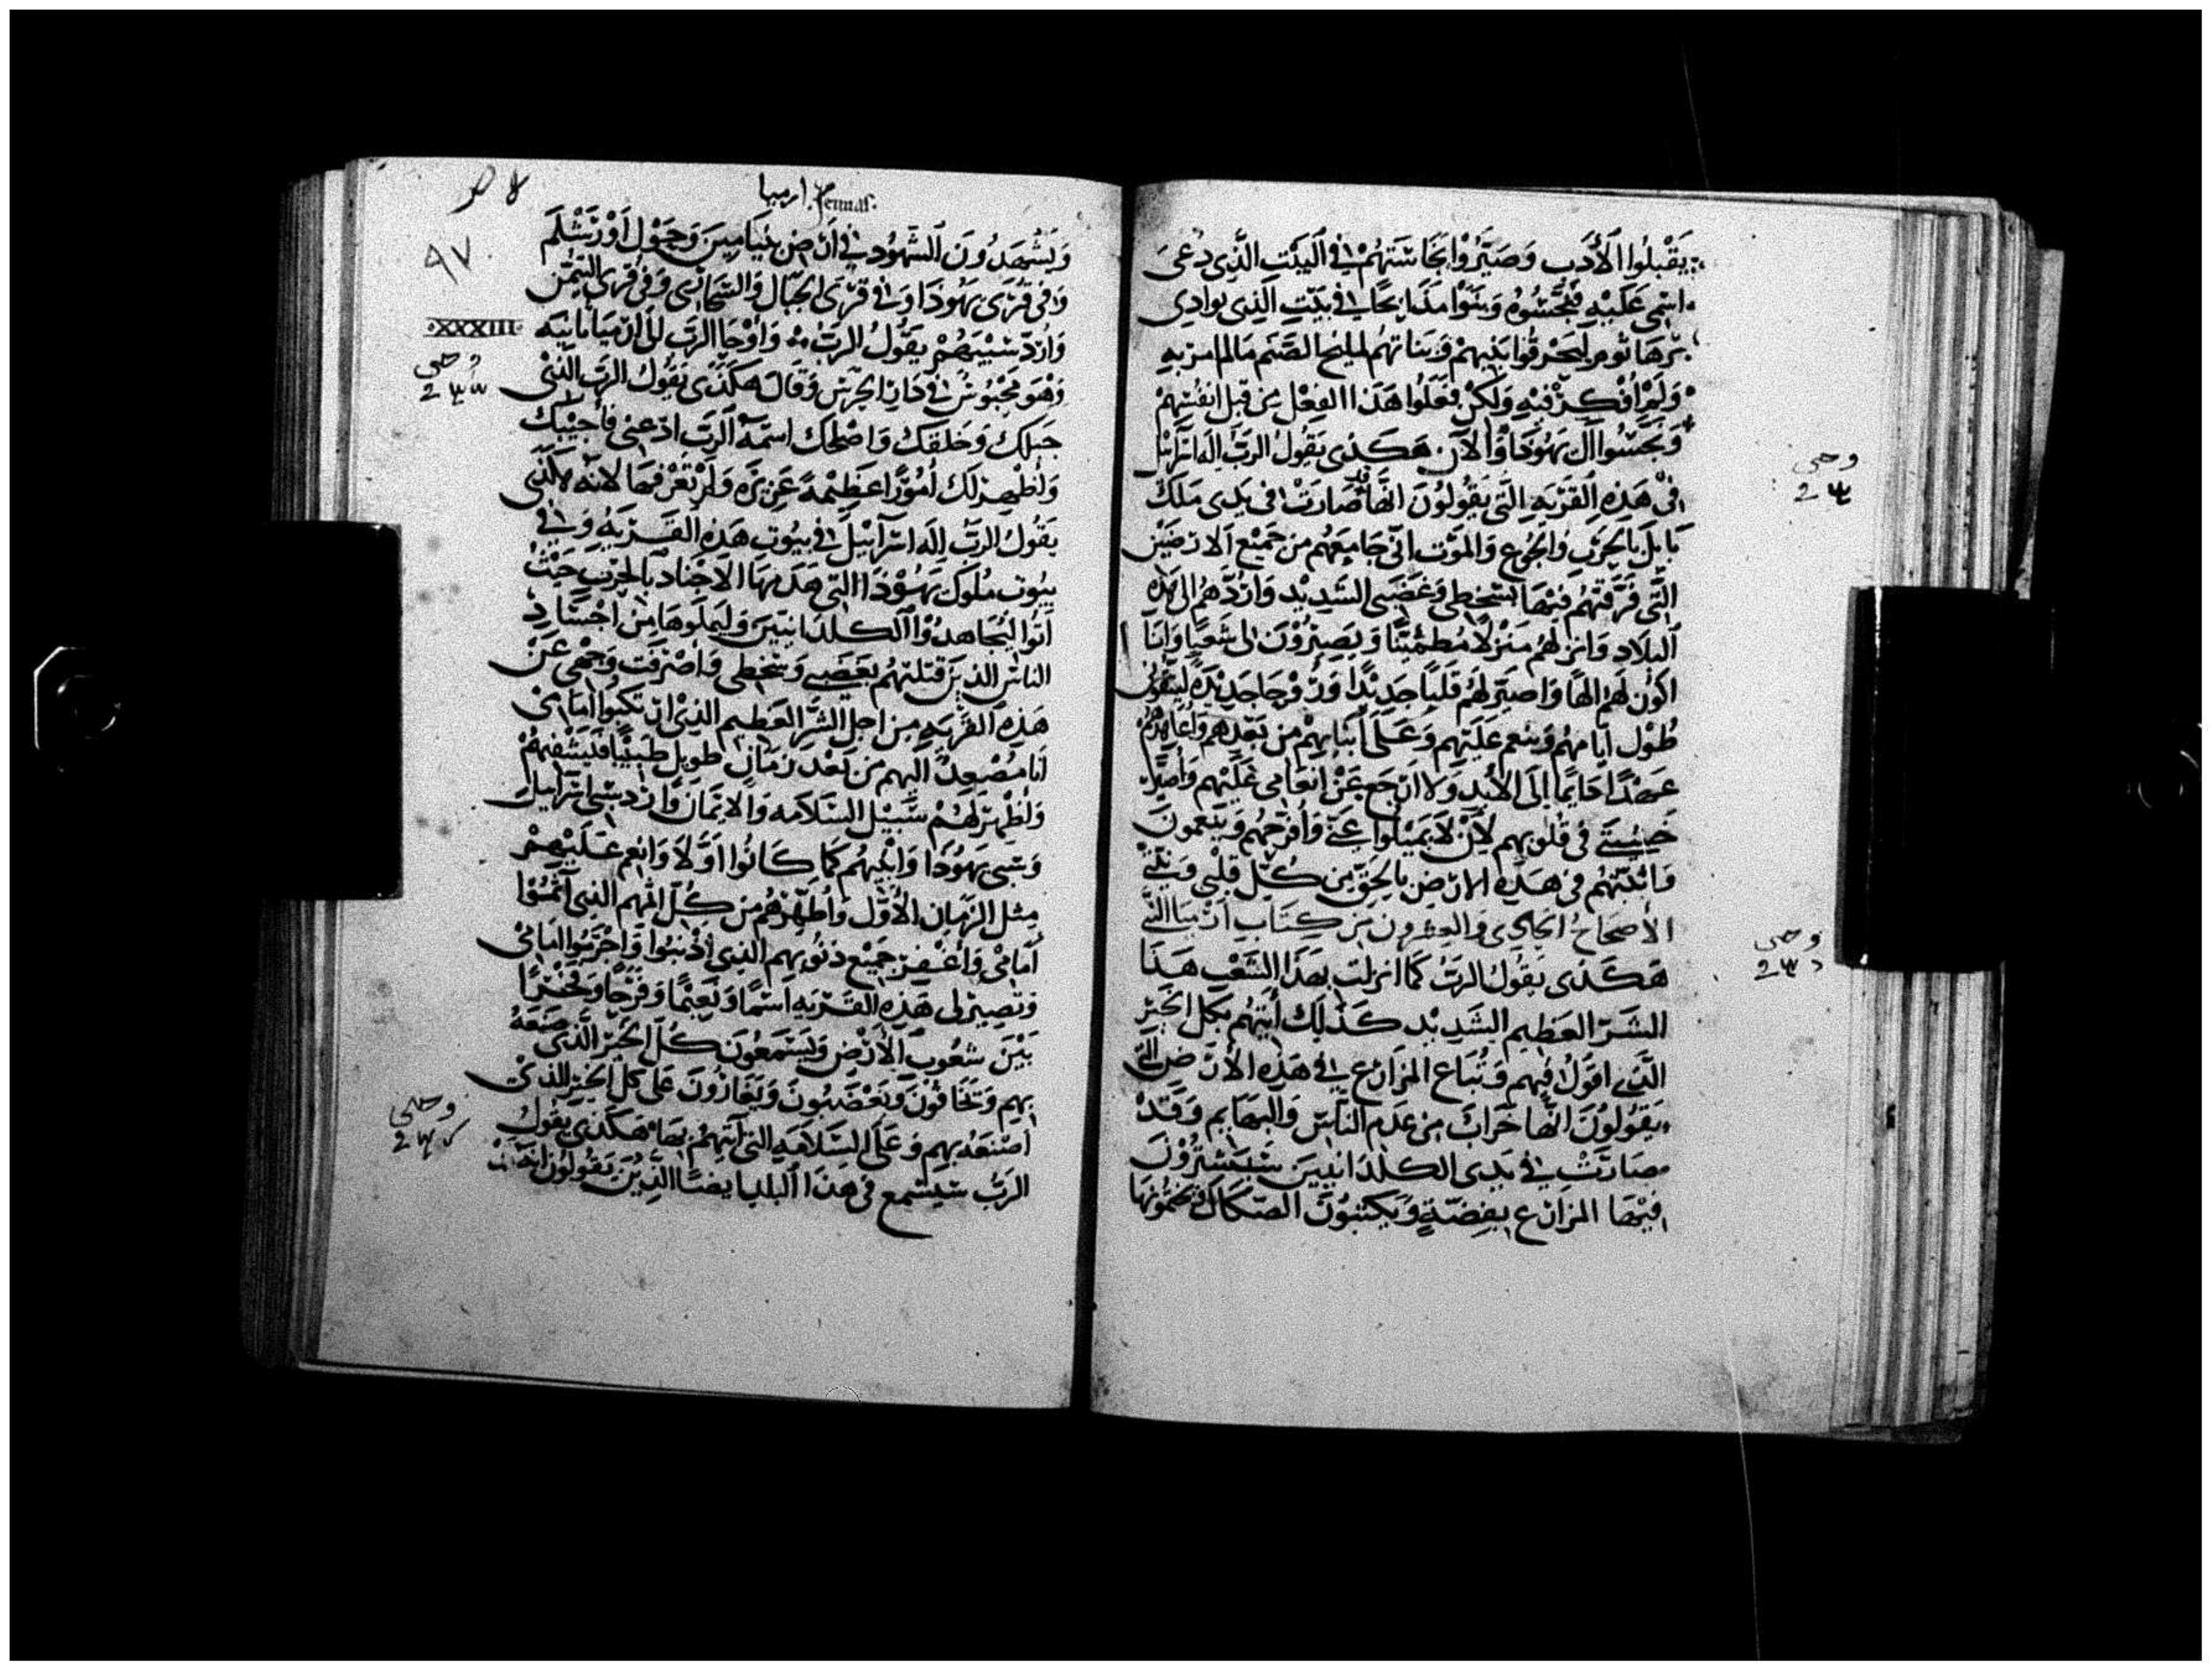 يَقْبلُوا الأدَب وَصَيَّرُوْا نجَاسَتَهُمْ فِي البَيْتِ الَّذِي دُعىَ
اسْمى عَلَيْهِ فنجَّسُوْهُ وَبَنَوْا مَذَابحًا فى بَيْتِ الَّذِى بوَادِى
ليحْرقُوا بَنِيهِمْ وَبَنَاتِهمْ الصَّنَم مَالم امر بهِ
وَلَمْ افْكِرْ فيْهِ وَلَكِنْ فعَلُوا هَذَا الفِعْل مِن قِبَل انفُسِهمْ
وَنجَّسُوا آل يَهُوْذَا وَالآن هَكَذى يَقُولُ الرَّبُّ اله اسْرَايْل
فِىْ هَذِهِ القَرْيَهِ الَّتِى يَقُولُوْنَ انَّهَا قد صَارَتْ فى يَدى مَلك
بَابِل بالحَرْبِ وَالجُوع وَالمَوْت انّى جَامِعَهُم من جَمِيْع الارَضِيْن
الَّتِى فَرَّقتَهُم فيْهَا بسَخطِى وَغضَبى الشَدِيْد وَارُدَّهُم الى هَذِهِ
البلَاد وَانزلهُم مَنزلًا مُطمئِنًّا وَيَصِيْرُوْن لى شَعبًا وَانَا
اكوُن لَهُم الهًا وَاصيّر لهُم قَلبًا جَدِيْدًا وَرُوْحًا جَدِيْدَهً ليتَّقوُنى
طُوْل ايّامهُم وَينعم عَلَيْهِم وَعَلَى ابْنَايهِمْ من بَعْدِهم وَاعَاهِدهُم
عَهْدًا دَايمًا اِلَى الأبَدِ وَلا ارْجَع عَنْ انعَامى عَلَيْهِم وَاصيّر
خَشْيَتى فى قُلوبهم لأِنْ لَا يَمِيْلوا عَنّى وَافرّحهُم وَيَنعمُونَ
وَاثبّتهُم فى هَذِهِ الارْض بالحَقّ مِن كُلّ قلبى وَنيّتى
الأصحَاحُ الحَادِى وَالعِشرون مِن كِتَاب ارْميَا النَّبى
هَكَذى يَقُولُ الرَّبُّ كَمَا انزلت بهَذا الشَعْب هَذَا
الشَرّ العَظِيم الشَدِيْد كَذَلِك اتِيْهُم بكل الخَيْر
الَّذى اقوُلُ فيهم وَتُبَاع المَزَارْع فِي هَذِهِ الأرْض الّتى
يَقُولُوْنَ انَّها خَرَابٌ مِن عَدَم النَّاسِ وَالبهَايم وَقَدْ
صَارَتْ فِي يَدِى الكلدَانيينَ سَيَشتَرُوْنَ
فيْهَا المَزَارْع بفِضَّةٍ وَيَكتبُوُنَ الصّكَاك وَيختمُوْنهَا
وحى
وحى
ارميا Jeremias.
٩٧
وَيَشْهَدُوْنَ الشُّهُوُد فى ارْض بنيَامِينَ وَحَوْل اوْرَشْلَم
وَفى قُرَى يَهُوذَا وَفى قرَى الجبَال وَالصَّحَارى وَفى قرى التيْمَن
وَارُدّ سَبْيَهُمْ يَقُولُ الرَبُّ وَاوْحَا الرَب لى ارْميَا ثَانيَه
XXXIII
وحى
وَهُو مَحْبُوسٌ فى دَار الحَرَس وَقَالَ هَكَذَى يَقُوُل الرَب الَّذِىْ
جَبلك وَخَلقَكَ وَاصْلحَك اسْمهُ الرَبّ ادْعنى فأُجيْبُكَ
وَأُظهِر لَك أُمُوْرًا عَظِيْمهً عَزِيزَه وَلَمْ تَعْرفهَا لانّه هَكَذى
يَقُولُ الرَبُّ اِلَه اسْرَآئِيْل فى بيُوت هَذِهِ القَرْيَهُ وَفى
بيُوت مُلوُك يَهُوْذَا التى هَدَمهَا الاجْنَاد بالحَرْب حَيْثُ
اتَوْا ليُجَاهدُوْا الكلدَانيّينَ وَليَملوهَا مِن اجْسَادِ
النَاس الذِيْنَ قتَلتهُم بغَضَبى وَسَخطِى وَاصْرفت وَجْهى عَنْ
هَذِهِ القَرْيَهِ مِن اجل الشَّر العَظِيم الذِىْ ارْتكبوُا امَامىْ
انَا مُصْعدٌ اليهم مِن بَعْد زمَان طوِيْل طبيْبًا فَيَشْفيهُمْ
وَاظهِر لَهُمْ سَبيْل السَلَامَه وَالايمَان وَاردّ سَبى اسْرَاييل
وَسَبى يَهُوُذَا وَابْنيهُم كَمَا كَانُوُا اوَّلًا وَانعم عَلَيْهمْ
مِثل الزَمَان الأوّل وَاُطَهّرهُم مِن كُلّ اثمهِم الَذِى اثمُوْا
أمَامىْ وَاغْفِر جَمِيْع ذنُوبهِم الذِى اذْنبُوا وَاجْرَمُوا امَامىْ
وَتصِيْر لى هَذِهِ القَرْيَهِ اسْمًا وَنَعِيْمًا وَفَرَحًا وَفَخْرًا
بَيْنَ شعُوب الأرْض وَيَسْتَمعُوْنَ كُلّ الخَيْر الذَّى صَنَعَهُ
بهِم وَتَخَافوُنَ وَيَغْضَبُونَ عَلى كُل الخَيْر الَّذِىْ
وحى
اصْنَعَهُ بهِم وَعَلَى السَلَامَهِ التى اتيْهُمْ بهَا هَكَذى يَقُولُ
الرَبُّ سَيُسْمع فى هَذَا البلد ايضًا الَّذِينَ يَقُولوُن